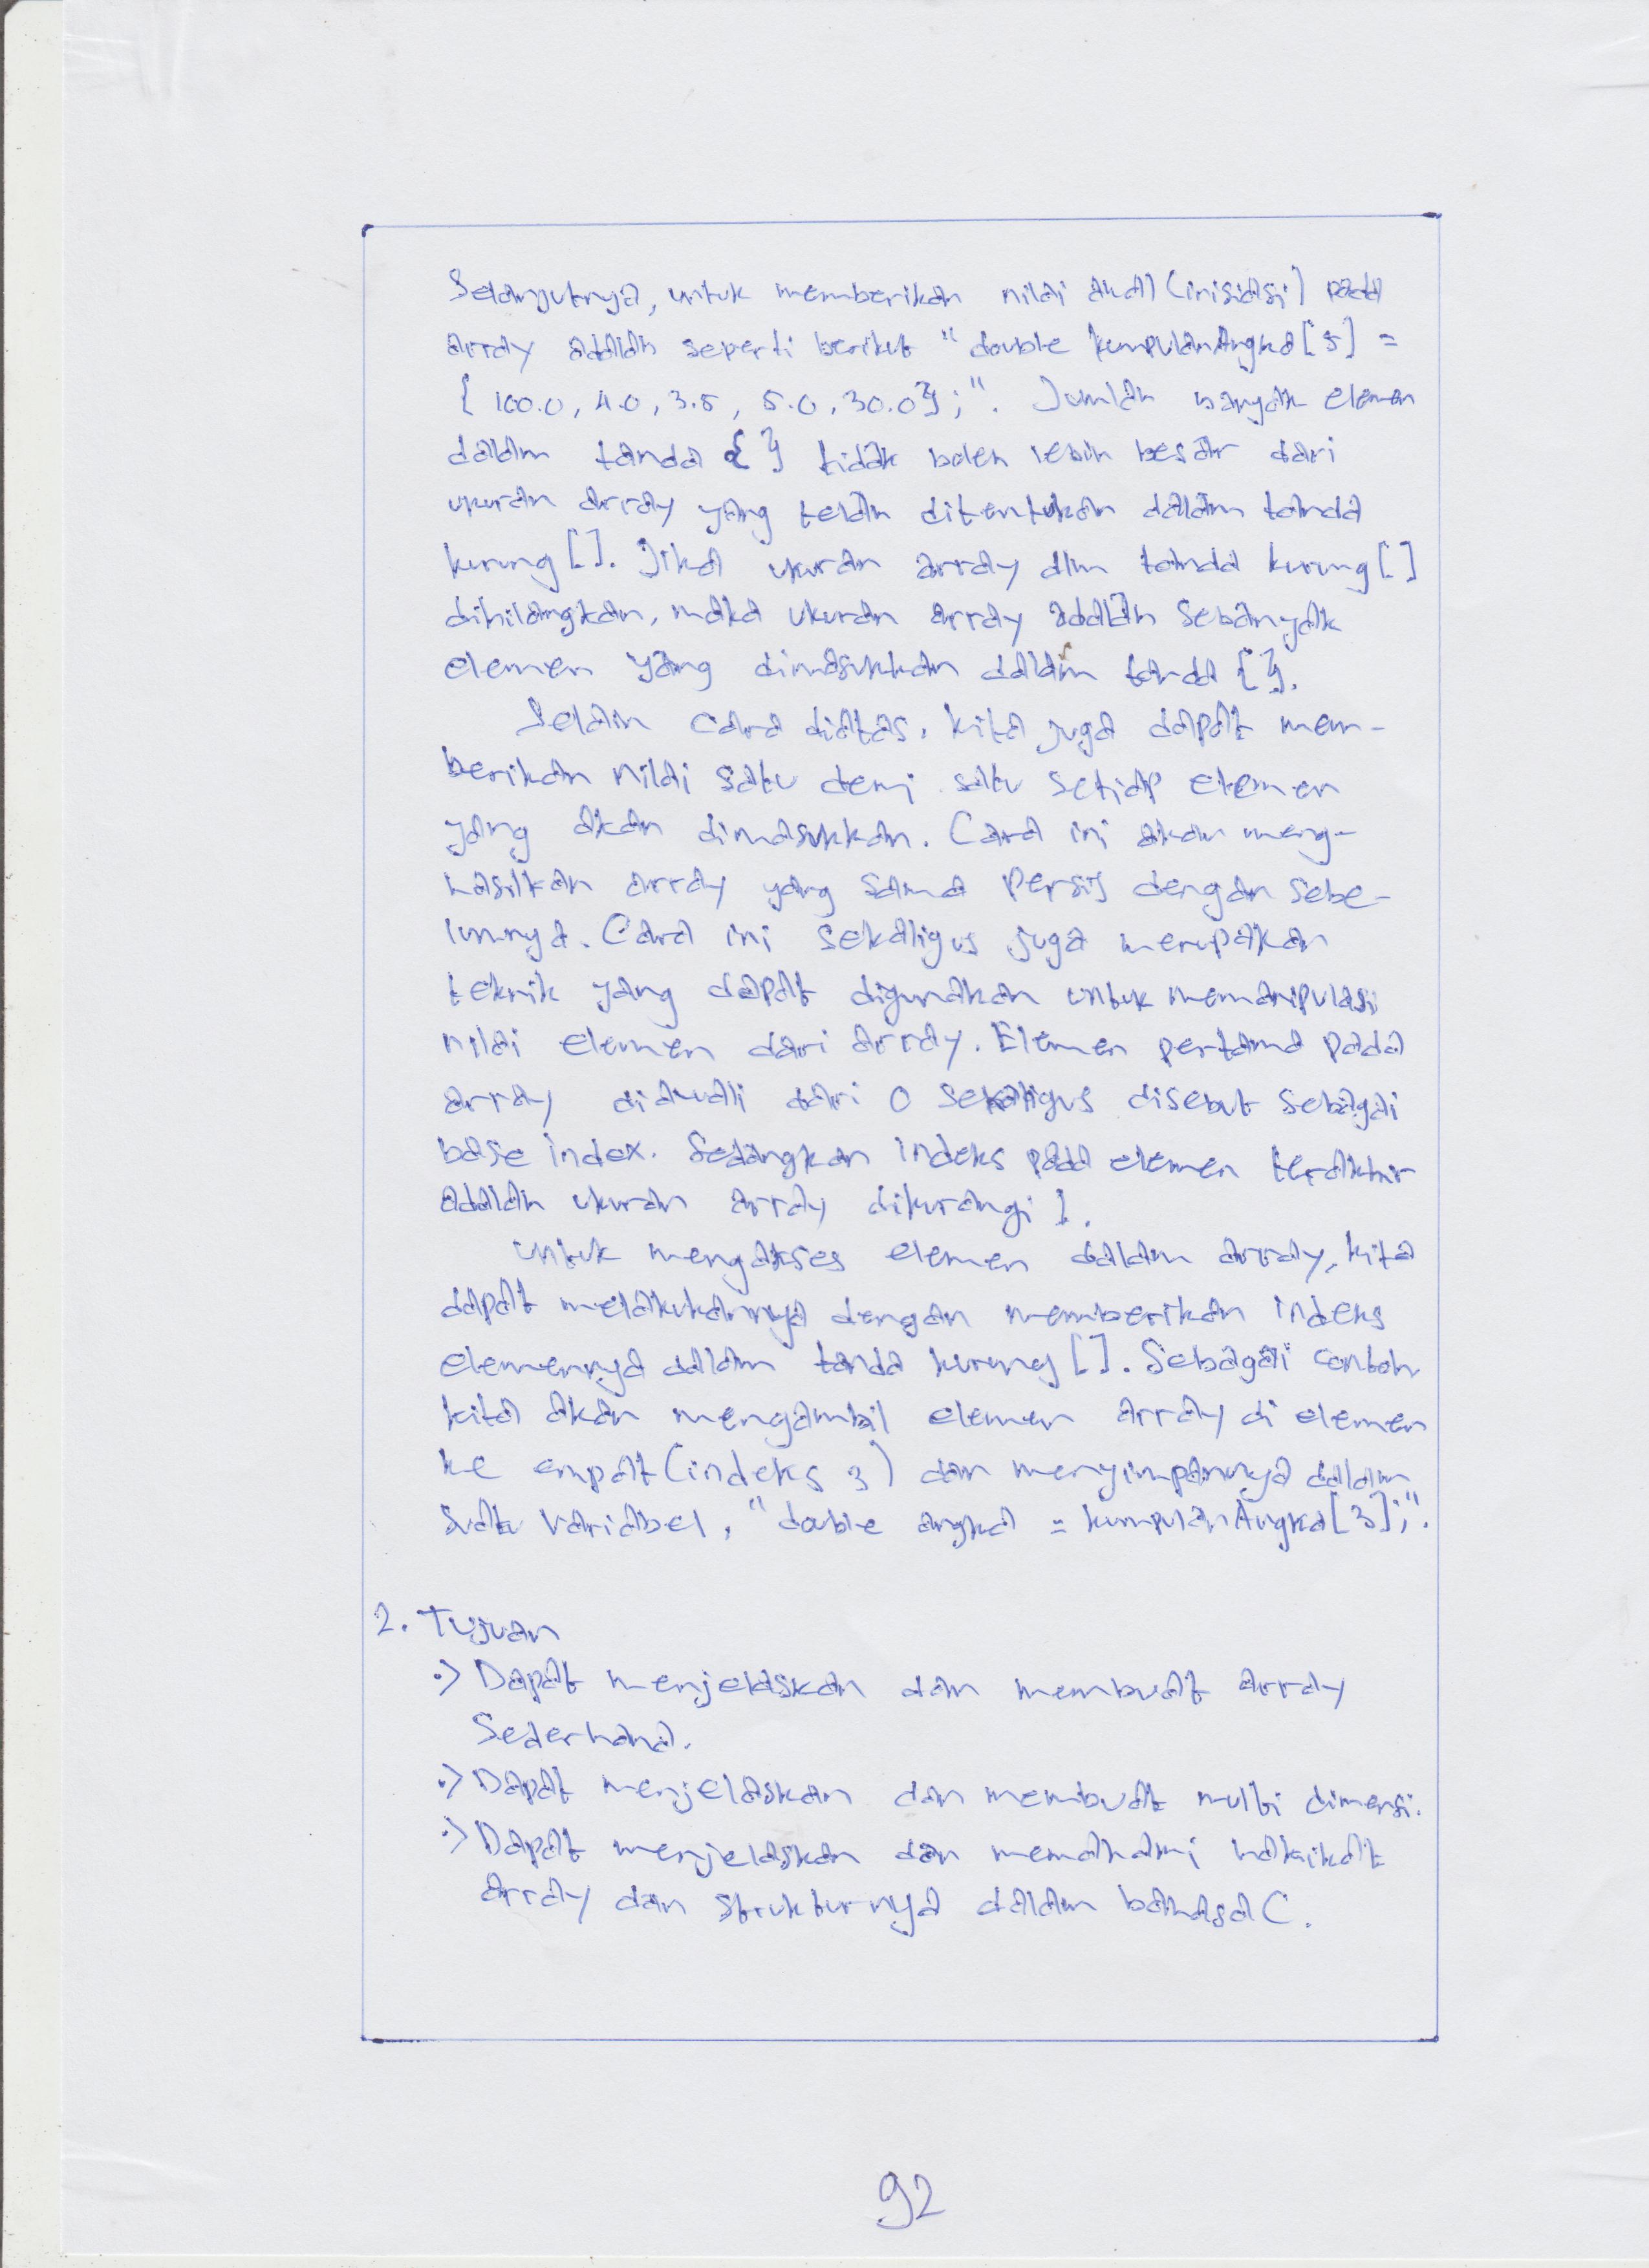 Selanjutnya, untuk memberikan nilai awal (inisiasi) pada
array adalah seperti berikut "double kumpulanAngka[5] =
{ 100.0, 4.0, 3.5, 5.0, 30.0};". Jumlah banyak elemen
dalam tanda { } tidak boleh lebih besar dari
ukuran array yang telah ditentukan dalam tanda
kurung []. Jika ukuran array dlm tanda kurung []
dihilangkan, maka ukuran array adalah sebanyak
elemen yang dimasukkan dalam tanda { }.
Selain cara diatas, kita juga dapat mem-
berikan nilai satu demi satu setiap elemen
yang akan dimasukkan. Cara ini akan meng-
hasilkan array yang sama persis dengan sebe-
lumnya. Cara ini sekaligus juga merupakan
teknik yang dapat digunakan untuk memanipulasi
nilai elemen dari array. Elemen pertama pada
array diawali dari 0 sekaligus disebut sebagai
base index. Sedangkan indeks pada elemen terakhir
adalah ukuran array dikurangi 1.
Untuk mengakses elemen dalam array, kita
dapat melakukannya dengan memberikan indeks
elemennya dalam tanda kurung []. Sebagai contoh
kita akan mengambil elemen array di elemen
ke empat (indeks 3) dan menyimpannya dalam
suatu variabel, "double angka = kumpulanAngka[3];".
2. Tujuan
:> Dapat menjelaskan dan membuat array
Sederhana.
:> Dapat menjelaskan dan membuat multi dimensi.
:> Dapat menjelaskan dan memahami hakikat
array dan strukturnya dalam bahasa C.
92